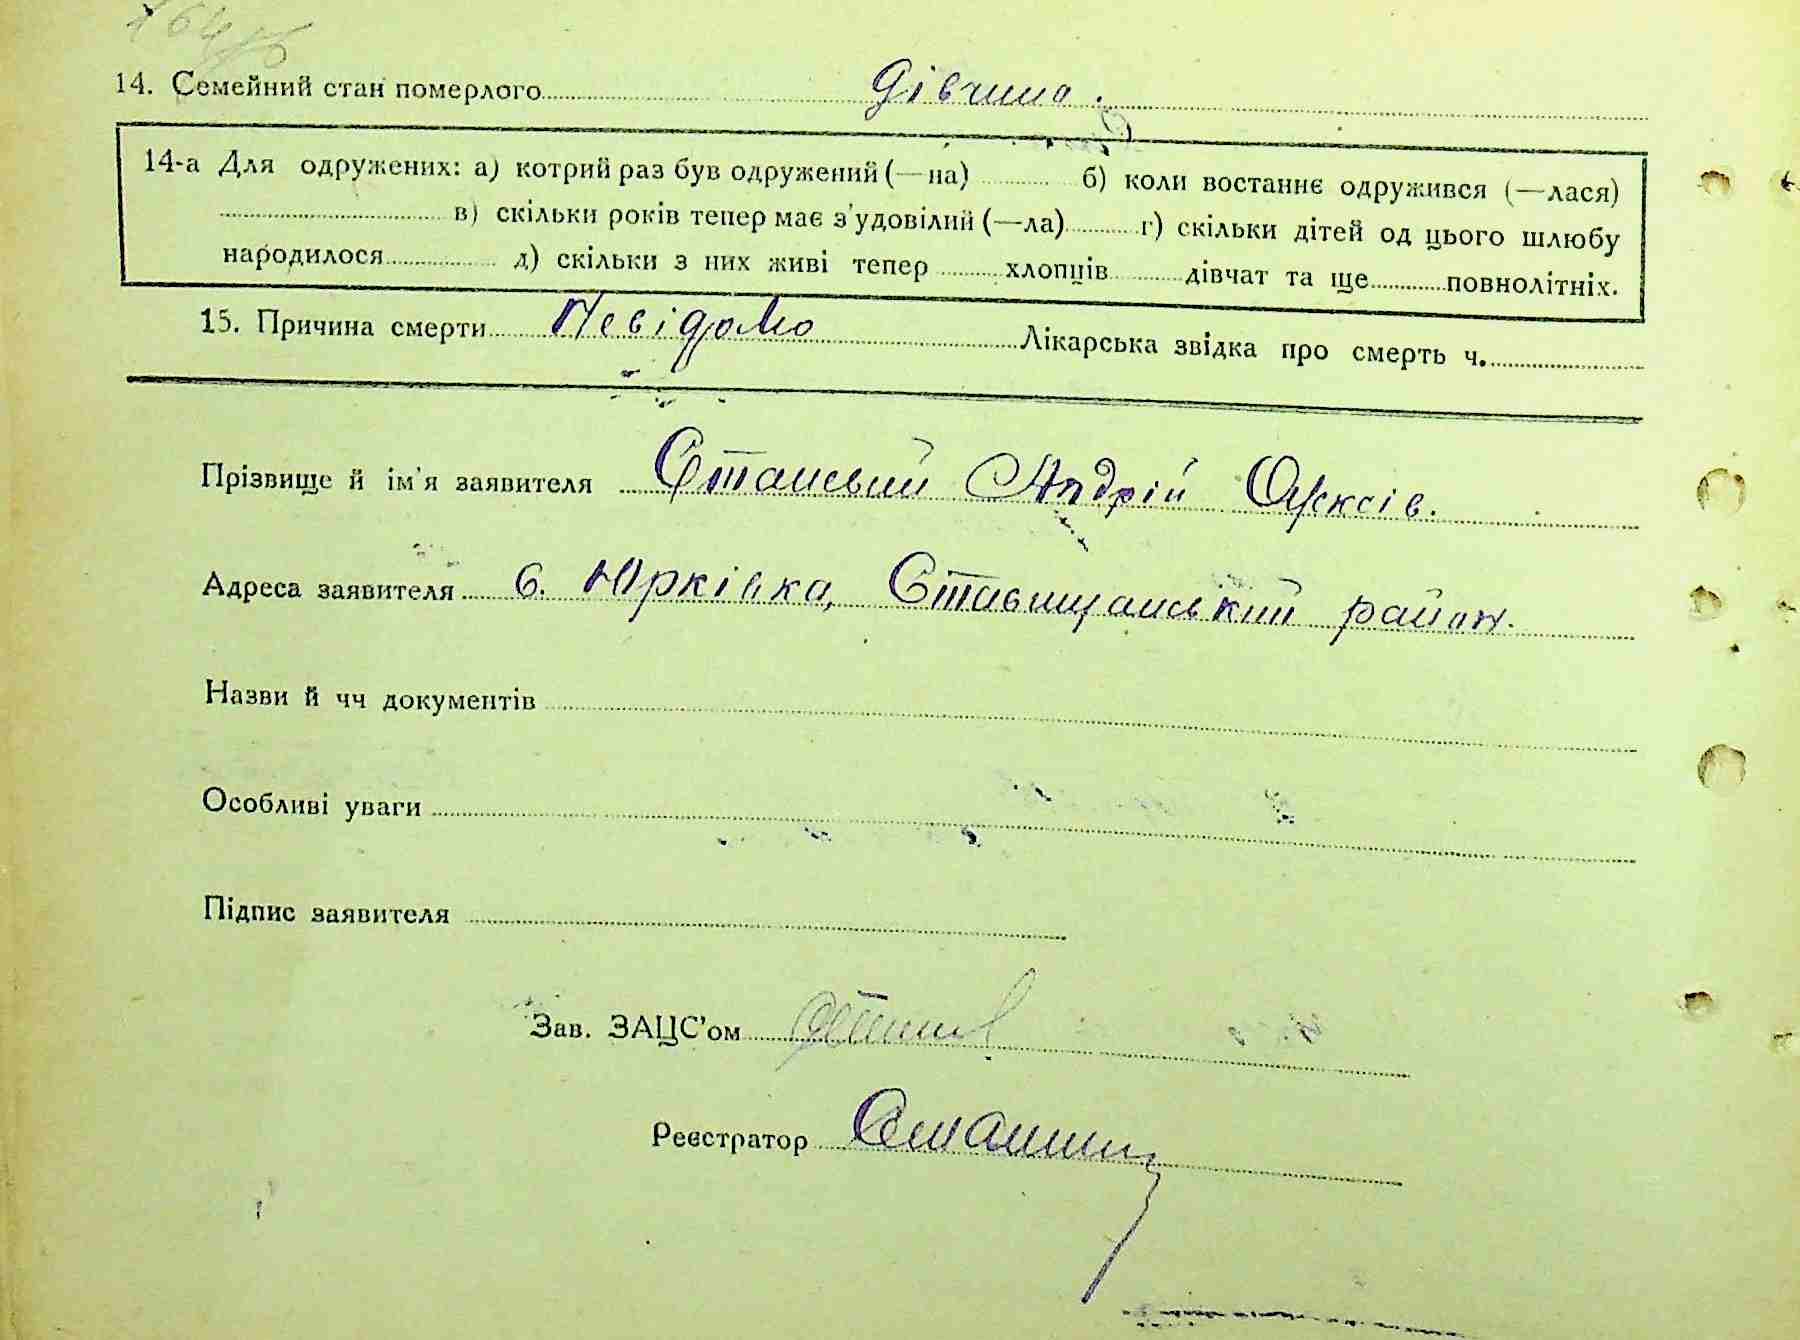 14. Семейний стан померлого дівчина.
14-а Для одружених: а) котрий раз був одружений (—на) б) коли востаннє одружився (—лася)
в) скільки років тепер має з'удовілий (—ла) г) скільки дітей од цього шлюбу
народилося д) скільки з них живі тепер хлопців дівчат та ще повнолітніх.
15. Причина смерти Невідомо Лікарська звідка про смерть ч.
Прізвище й ім'я заявителя Андрій
Адреса заявителя с. Юрківка, Ставищанський район.
Назви й чч документів
Особливі уваги
Підпис заявителя
Зав. ЗАЦС'ом
Реєстратор